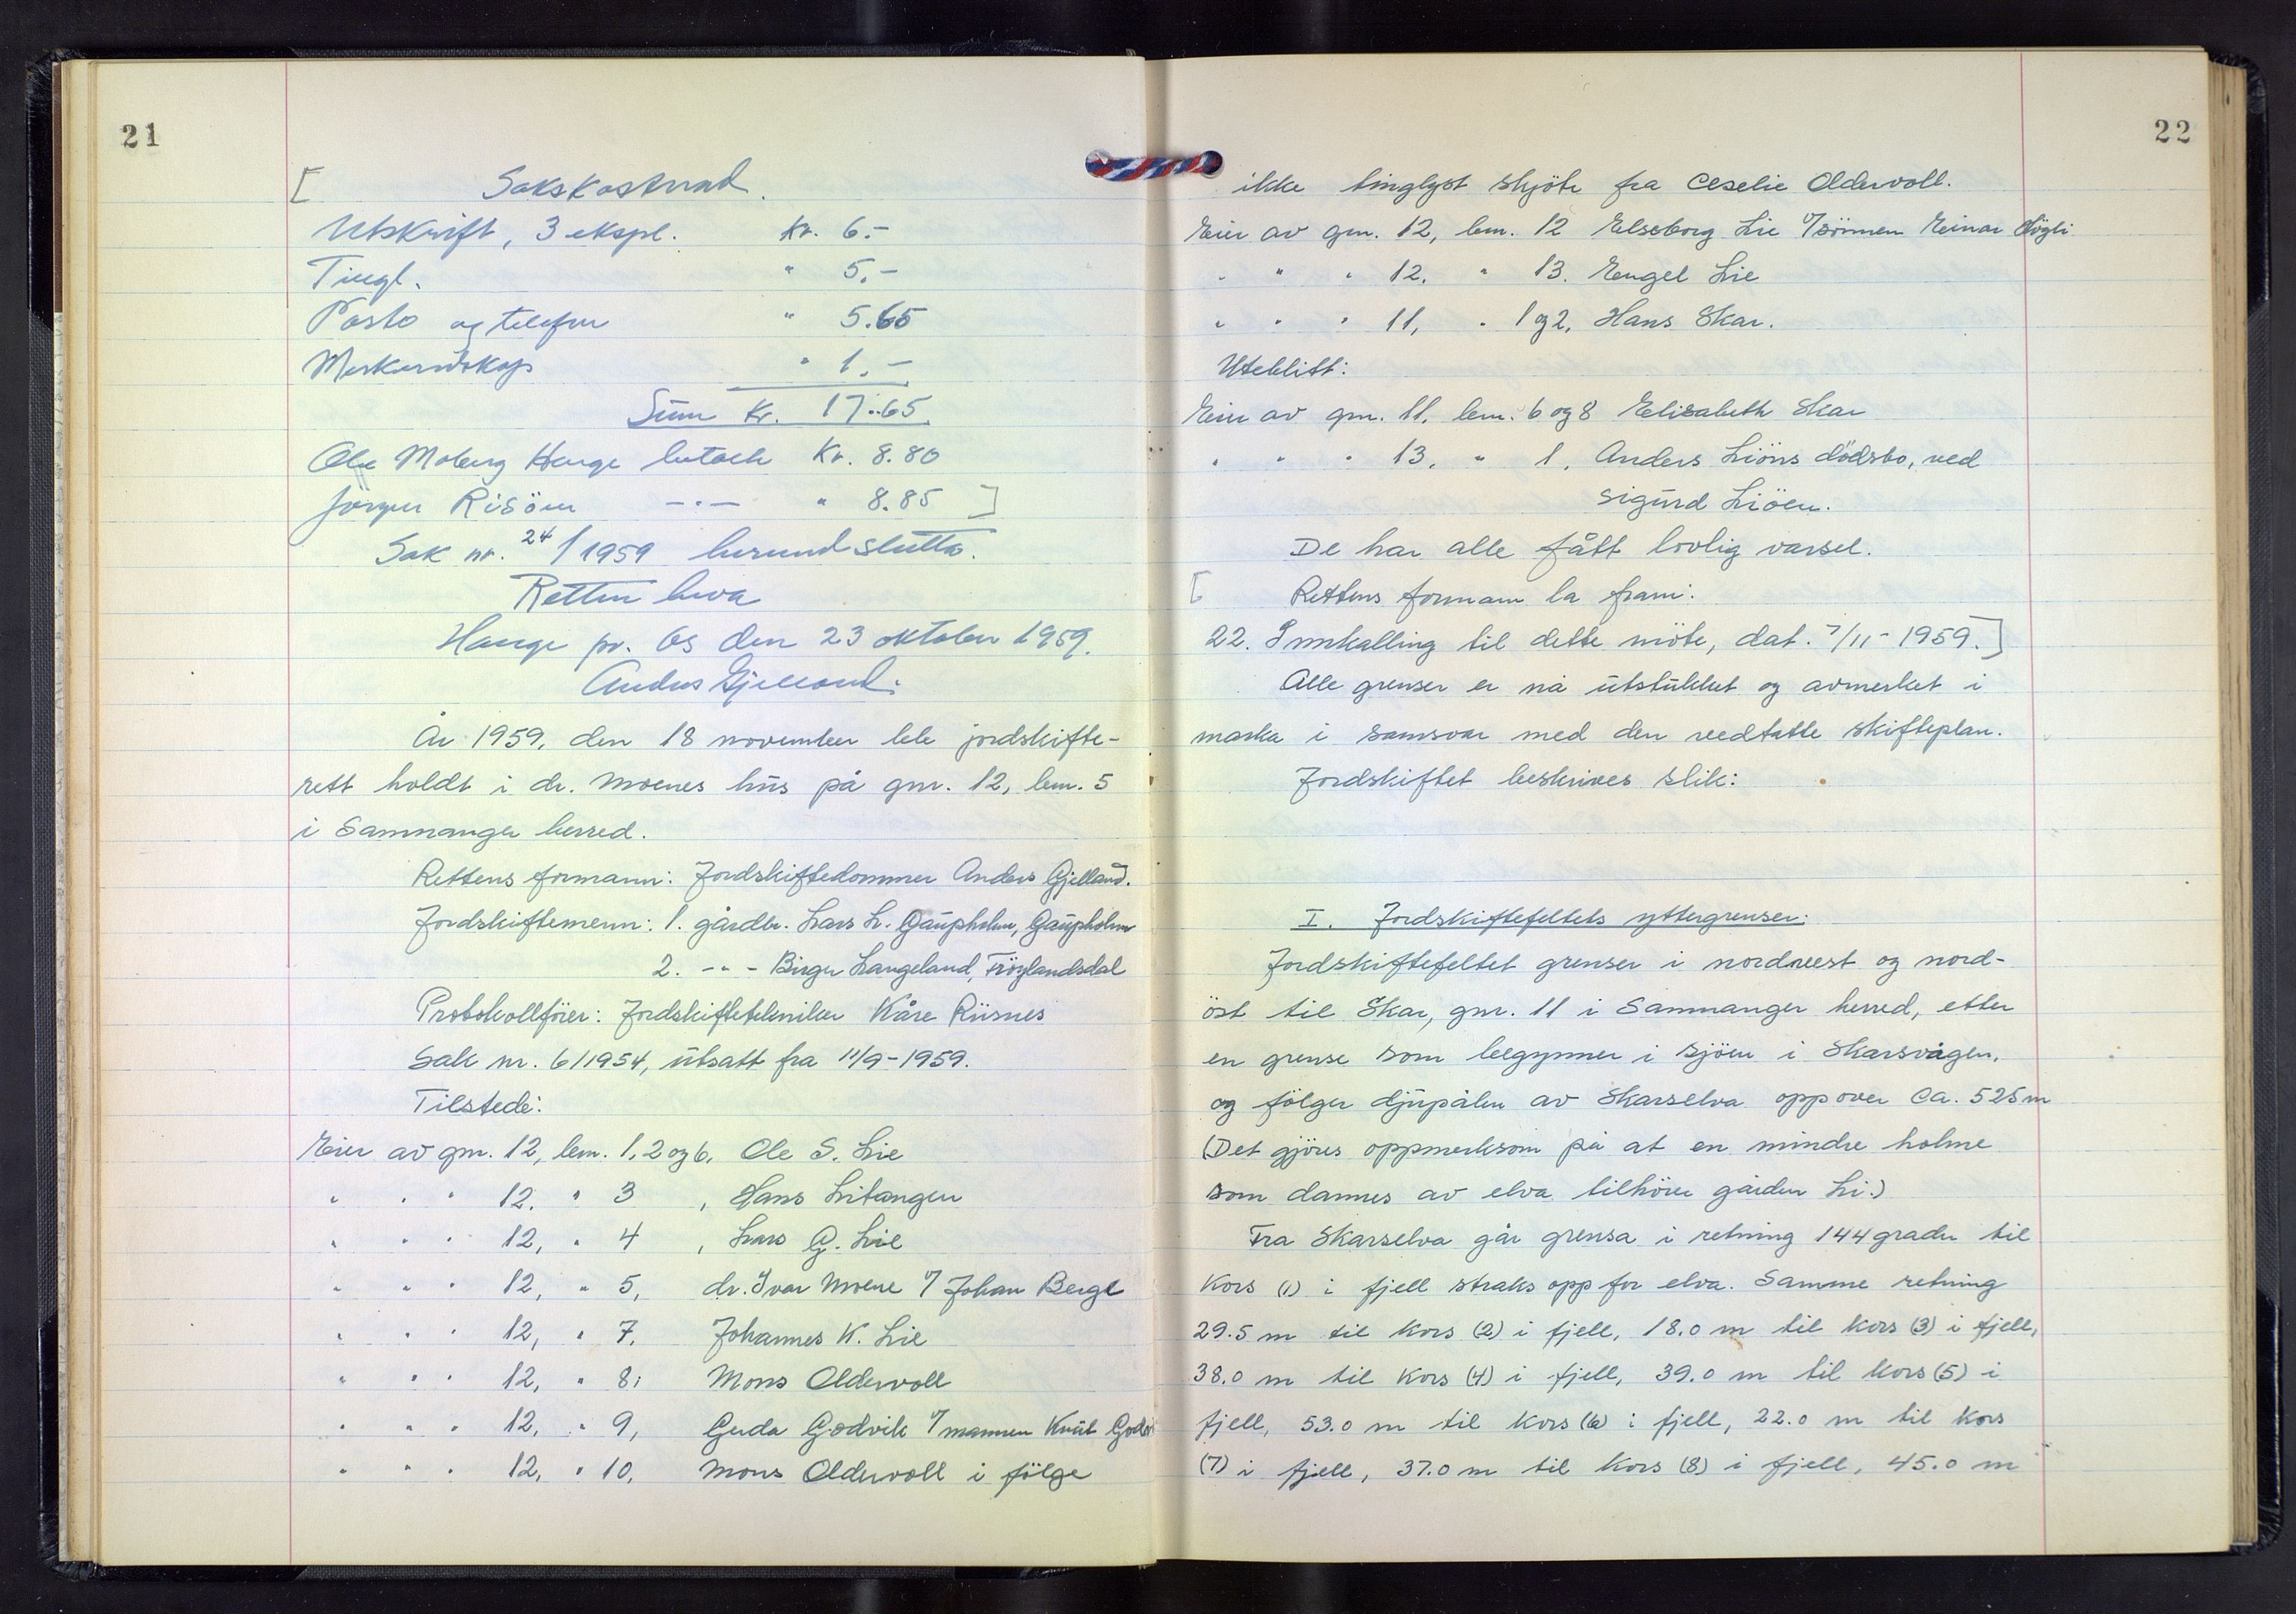 21
[ Sakskostnad.
Utskrift, 3 ekspl. kr. 6.-
Tingl. " 5.-
Porto og telefon " 5.65
Merkunnskap " 1.-
Sum kr. 17.65
Ole Moberg Hauge betack kr. 8.80
Jörgen Risöen -"- " 8.85 ]
Sak nr. 24/1959 herund slutta.
Retten heva
Hauge pr. Os den 23 oktober 1959.
Anders Gjelland.
År 1959, den 18 november ble jordskifte-
rett holdt i dr. Moenes hus på gnr. 12, bnr. 5
i Samnanger herred.
Rettens formann: Jordskiftedommer Anders Gjelland.
Jordskiftemenn: 1. gårdbr. Lars L. Gaupholm, Gaupholm
2. -"- Birger Langeland, Tröglandsdal
Protokollförer: Jordskiftetekniker Kåre Riisnes
Sak nr. 6/1954, utsatt fra 11/9-1959.
Tilstede:
Eier av gnr. 12, bnr. 1, 2 og 6, Ole S. Lie
" " " 12, " 3, Hans Litangen
" " " 12, " 4, Lars G. Lie
" " " 12, " 5, dr. Ivar Moene v/ Johan Berge
" " " 12, " 7, Johannes K. Lie
" " " 12, " 8, Mons Oldervoll
" " " 12, " 9, Guda Godvik v/ mannen Knut Godvi
" " " 12, " 10, Mons Oldervoll i fölge
22
ikke tinglyst skjöte fra Ceselie Oldervoll.
Eier av gnr. 12, bnr. 12 Elseborg Lie v/ sönnen Einar Högli
" " " 12, " 13. Engel Lie
" " " 11, " 1 og 2, Hans Skar.
Uteblitt:
Eier av gnr. 11, bnr. 6 og 8 Elisabeth Skar
" " " 13, " 1, Anders Liöns dödsbo, ved
Sigurd Liöen.
De har alle fått lovlig varsel.
[ Rettens formann la fram:
22. Innkalling til dette möte, dat. 7/11-1959.]
Alle grenser er nå utstukket og avmerket i
marka i samsvar med den vedtatte skifteplan.
Jordskiftet beskrives slik:
I. Jordskiftefeltets yttergrenser:
Jordskiftefeltet grenser i nordvest og nord-
öst til Skar, gnr. 11 i Samnanger herred, etter
en grense som begynner i sjöen i Skarsvågen,
og fölger djupålen av Skarselva oppover ca. 525 m
(Det gjöres oppmerksom på at en mindre holme
som dannes av elva tilhörer gården Li.)
Fra Skarselva går grensa i retning 144 grader til
kors (1) i fjell straks opp for elva. Samme retning
29.5 m til kors (2) i fjell, 18.0 m til kors (3) i fjell,
38.0 m til kors (4) i fjell, 39.0 m til kors (5) i
fjell, 53.0 m til kors (6) i fjell, 22.0 m til kors
(7) i fjell, 37.0 m til kors (8) i fjell, 45.0 m